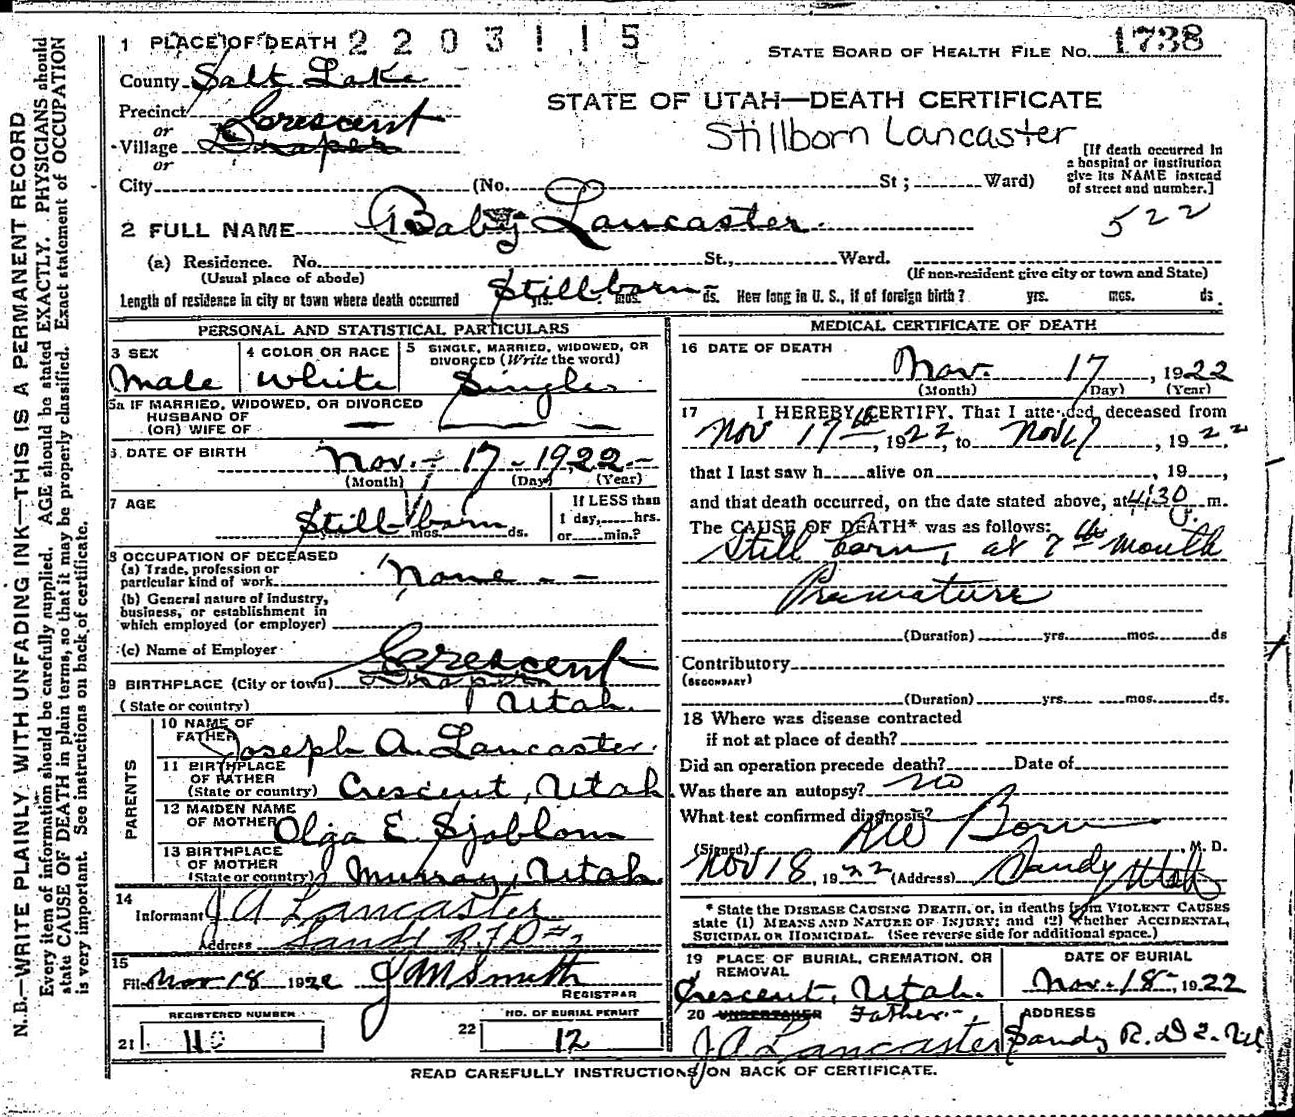 1 PLACE OF DEATH 2 2 0 3 1 1 5
STATE BOARD OF HEALTH FILE NO. 1738
County Salt Lake
STATE OF UTAH—DEATH CERTIFICATE
Precinct Crescent
or
Village Draper
Stillborn Lancaster
or
[If death occurred in
a hospital or institution
give its NAME instead
of street and number.]
City (No. St; Ward)
522
2 FULL NAME Baby Lancaster
(a) Residence. No. St., Ward.
(Usual place of abode) (If non-resident give city or town and State)
Length of residence in city or town where death occurred Stillborn yrs. mos. ds. How long in U. S., if of foreign birth? yrs. mos. ds.
PERSONAL AND STATISTICAL PARTICULARS
3 SEX Male
4 COLOR OR RACE White
5 SINGLE, MARRIED, WIDOWED, OR
DIVORCED (Write the word)
Single
5a IF MARRIED, WIDOWED, OR DIVORCED
HUSBAND OF
(OR) WIFE OF
6 DATE OF BIRTH Nov. - 17 - 1922 -
(Month) (Day) (Year)
7 AGE Stillborn mos. ds.
If LESS than
1 day, hrs.
or min.?
8 OCCUPATION OF DECEASED
(a) Trade, profession or
particular kind of work None - -
(b) General nature of industry,
business, or establishment in
which employed (or employer)
(c) Name of Employer
Crescent
9 BIRTHPLACE (City or town) Draper
(State or country) Utah.
PARENTS
10 NAME OF
FATHER Joseph A. Lancaster
11 BIRTHPLACE
OF FATHER
(State or country) Crescent, Utah.
12 MAIDEN NAME
OF MOTHER Olga E. Sjoblom
13 BIRTHPLACE
OF MOTHER
(State or country) Murray, Utah.
14
Informant J A Lancaster
Address Sandy R.F.D #2
15
Filed Nov 18 1922 J M Smith
REGISTRAR
REGISTERED NUMBER
21
NO. OF BURIAL PERMIT
22 12
MEDICAL CERTIFICATE OF DEATH
16 DATE OF DEATH
Nov. 17, 1922
(Month) (Day) (Year)
17 I HEREBY CERTIFY, That I attended deceased from
Nov 17th, 1922, to Nov 17, 1922
that I last saw h alive on , 19 ,
and that death occurred, on the date stated above, at 4:30 m.
The CAUSE OF DEATH* was as follows:
Still born, at 7th Month
Premature
(Duration) yrs. mos. ds
Contributory
(SECONDARY)
(Duration) yrs. mos. ds.
18 Where was disease contracted
if not at place of death?
Did an operation precede death? Date of
Was there an autopsy? no
What test confirmed diagnosis?
(Signed) , M. D.
Nov 18, 1922 (Address) Sandy Utah
* State the DISEASE CAUSING DEATH, or, in deaths from VIOLENT CAUSES
state (1) MEANS AND NATURE OF INJURY; and (2) whether ACCIDENTAL,
SUICIDAL OR HOMICIDAL. (See reverse side for additional space.)
19 PLACE OF BURIAL, CREMATION, OR
REMOVAL
Crescent, Utah.
DATE OF BURIAL
Nov. 18, 1922
20 UNDERTAKER Father.
J A Lancaster
ADDRESS
Sandy R. D 2. Utah
READ CAREFULLY INSTRUCTIONS ON BACK OF CERTIFICATE.
N. B.—WRITE PLAINLY, WITH UNFADING INK—THIS IS A PERMANENT RECORD
Every item of information should be carefully supplied. AGE should be stated EXACTLY. PHYSICIANS should
state CAUSE OF DEATH in plain terms, so that it may be properly classified. Exact statement of OCCUPATION
is very important. See instructions on back of certificate.